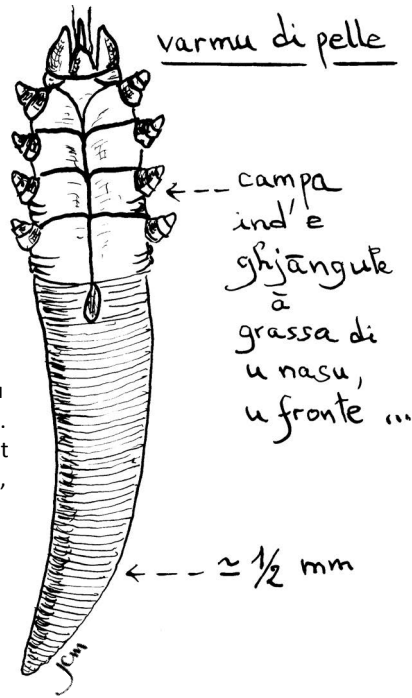 varmu di pelle
campa
ind'e
ghjāngule
ā
grassa di
u nasu,
u fronte ...
≃ 1/2 mm
jcm
u
.
t
,